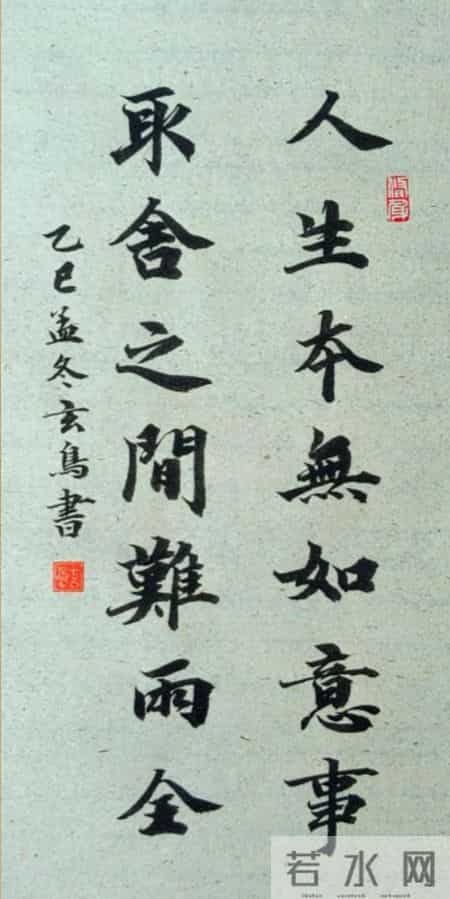 人生本無如意事
取舍之間難兩全
乙巳孟冬玄鳥書
若水网